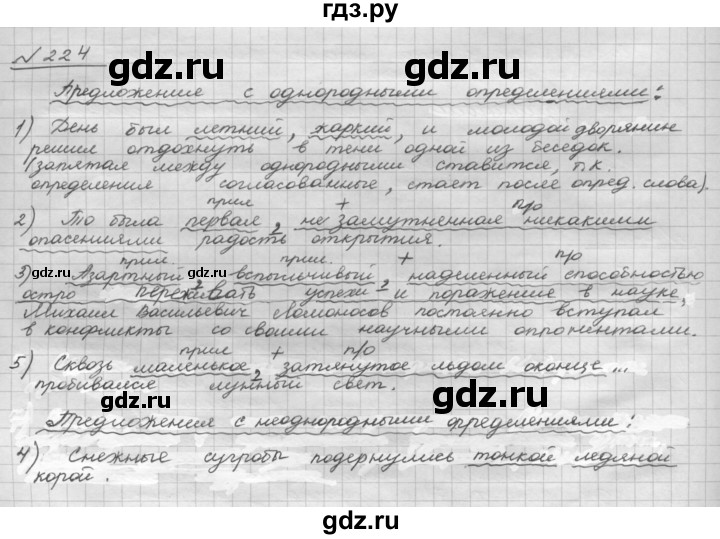 гдз.ру
№224
gdz.ru gdz.ru
Предложения с однородными определениями:
1) День был летний, жаркий, и молодой дворянин
решил отдохнуть в тени одной из беседок.
(запятая между однородными ставится, т.к.
определения согласованные, стает после опред. слова).
прил + п/о
2) То была первая, не замутненная никакими
опасениями радость открытия.
прил. прил. + п/о
3) Азартный, вспыльчивый, наделенный способностью
gdz.ru gdz.ru gdz.ru
остро переживать успехи и поражение в науке,
Михаил Васильевич Ломоносов постоянно вступал
в конфликты со своими научными оппонентами.
прил + п/о
5) Сквозь маленькое, затянутое льдом оконце ...
пробивался лунный свет.
gdz.ru gdz.ru
Предложения с неоднородными определениями:
4) Снежные сугробы подернулись тонкой ледяной
корой.
gdz.ru gdz.ru
gdz.ru